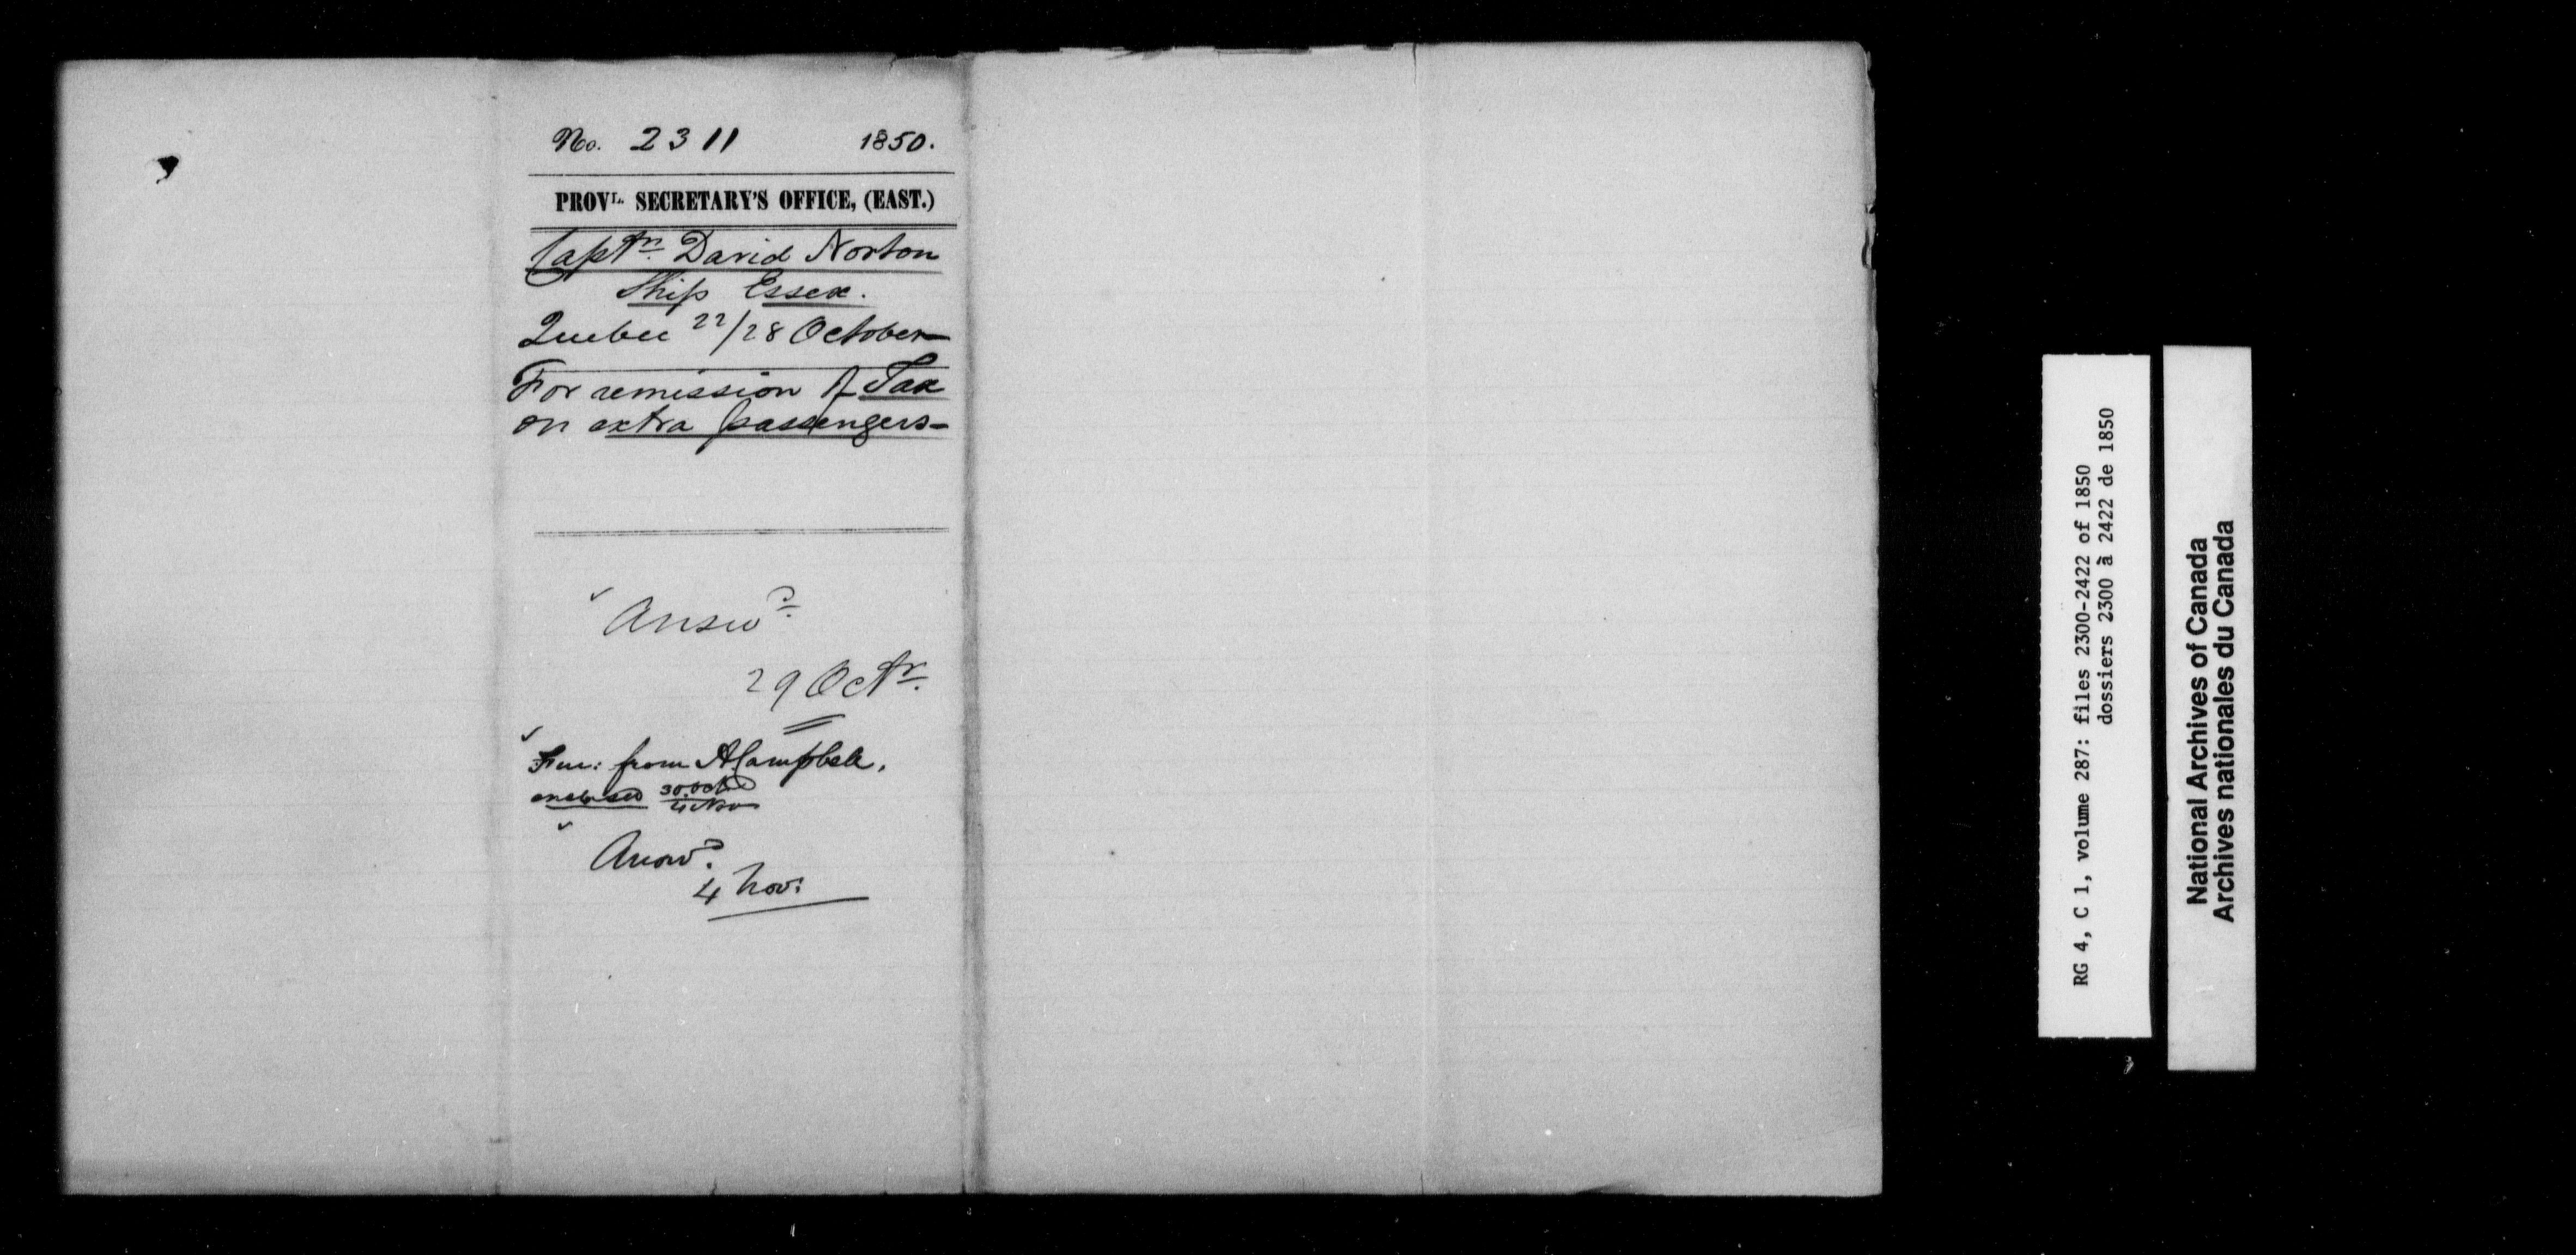 No. 2311 1850.
PROVL. SECRETARY'S OFFICE, (EAST.)
Captn. David Norton
Ship Essex.
Quebec 22/28 October
For remission of Tax
on extra passengers-
Answd.
29 Octr.
from A Campbell,
enclosed 30 Oct
4 Nov
Answd.
4 Nov:
RG 4, C 1, volume 287: files 2300-2422 of 1850
dossiers 2300 à 2422 de 1850
National Archives of Canada
Archives nationales du Canada